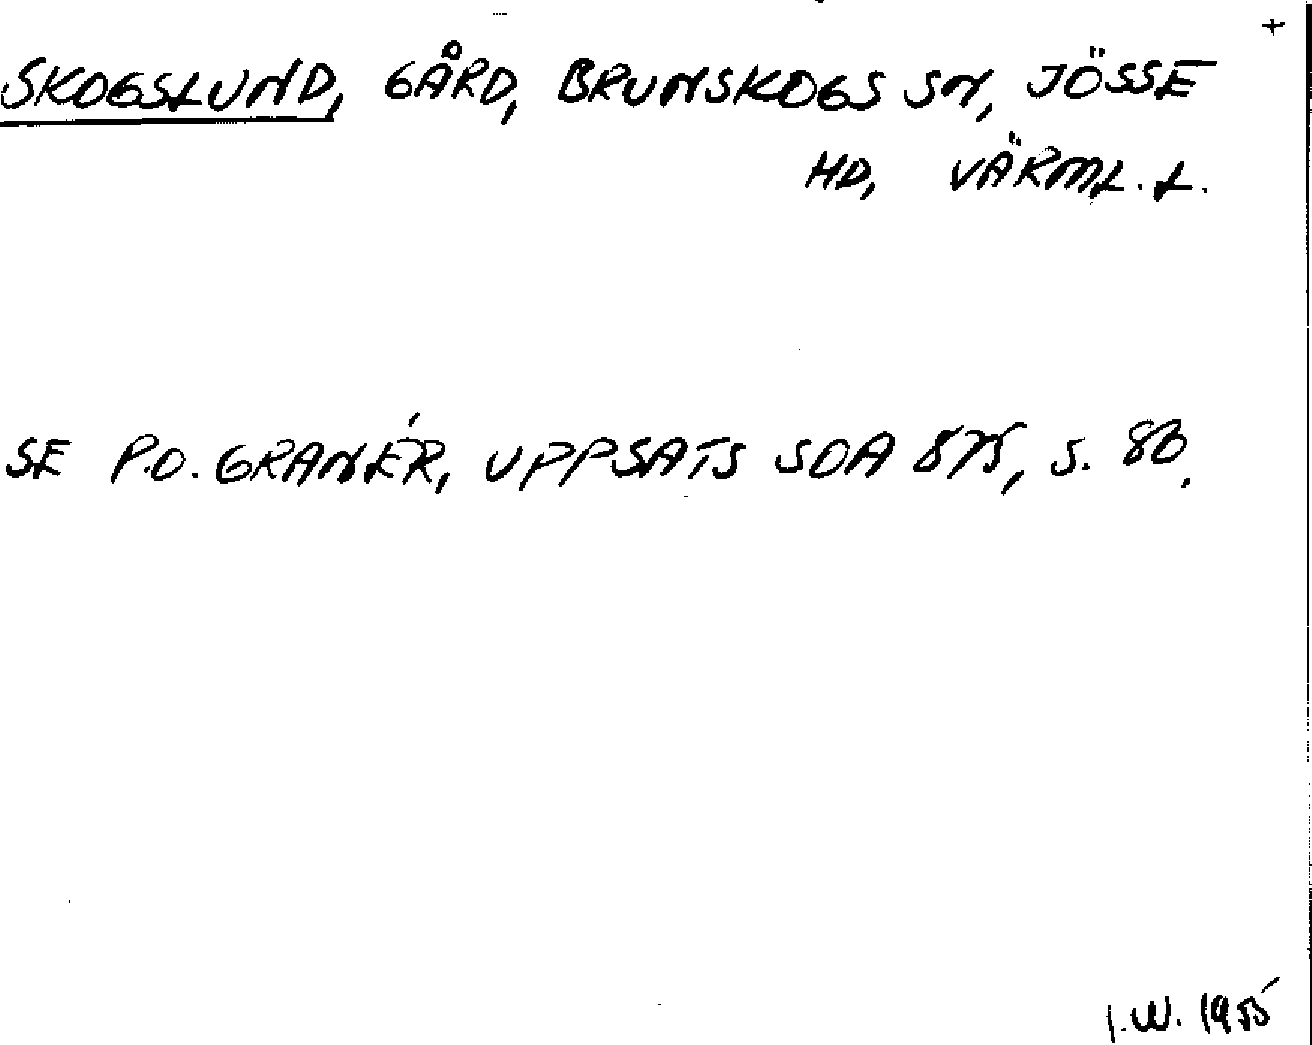 +
SKOGSLUND, GÅRD, BRUNSKOGS SN, JÖSSE
HD, VÄRML. L.
SE P.O. GRANÉR, UPPSATS SOA 875, S. 80.
I.W. 1955